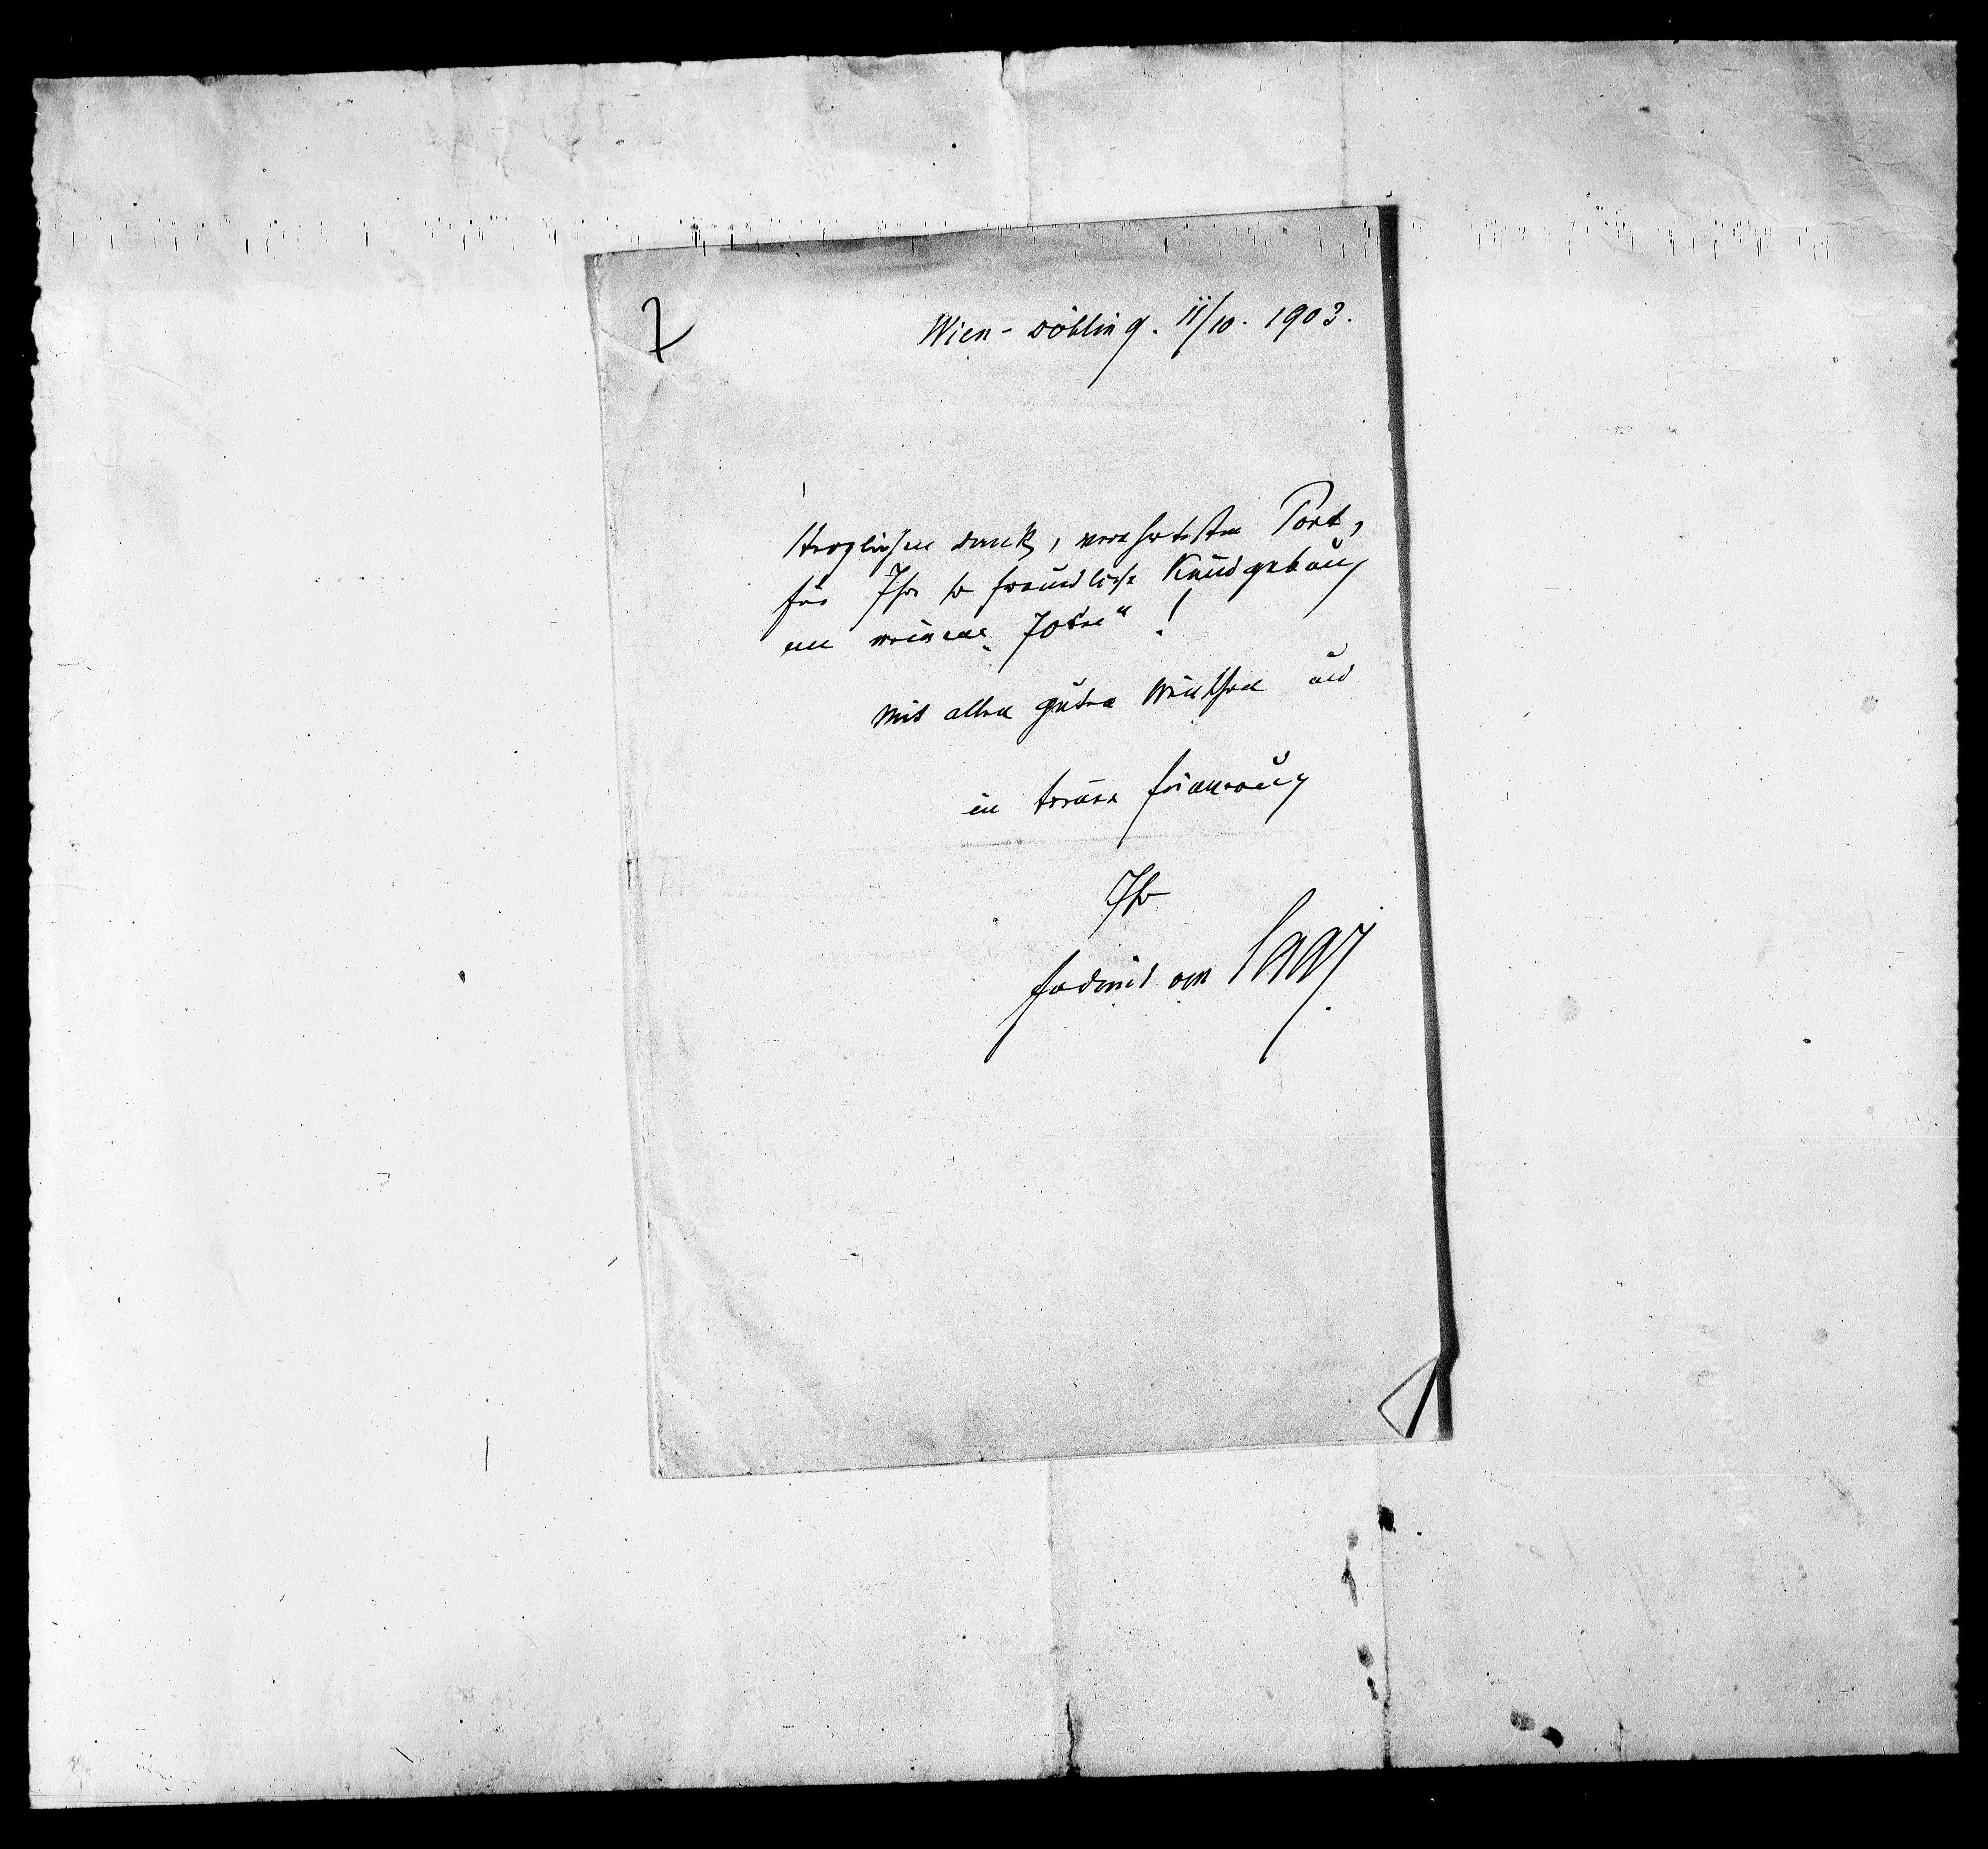 7
Wien-Döbling. 11/10. 1903.
Herzlichen Dank, verehrtester Poet,
für Ihre so freundliche Kundgebung
zu meinem „70ten“!
Mit allen guten Wünschen und
in treuer Erinnerung
Ihr
Ferdinand von Saar.